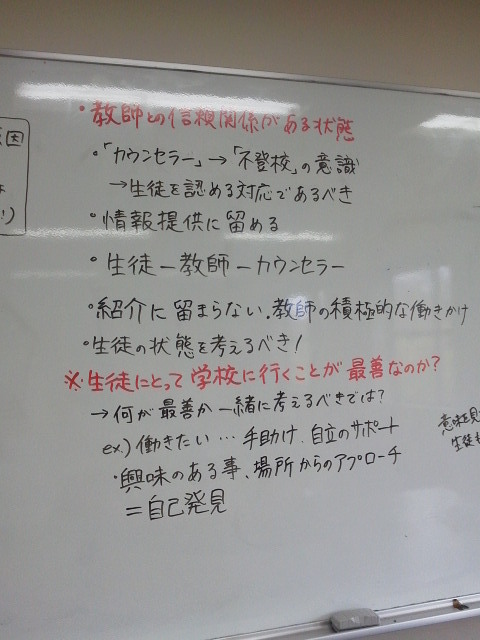 ・教師との信頼関係がある状態
・「カウンセラー」→「不登校」の意識
→生徒を認める対応であるべき
・情報提供に留める
・生徒ー教師ーカウンセラー
・紹介に留まらない、教師の積極的な働きかけ
・生徒の状態を考えるべき!
※生徒にとって学校に行くことが最善なのか?
→何が最善か一緒に考えるべきでは?
ex.) 働きたい… 手助け、自立のサポート
・興味のある事、場所からのアプローチ
=自己発見
因
意味見
生徒